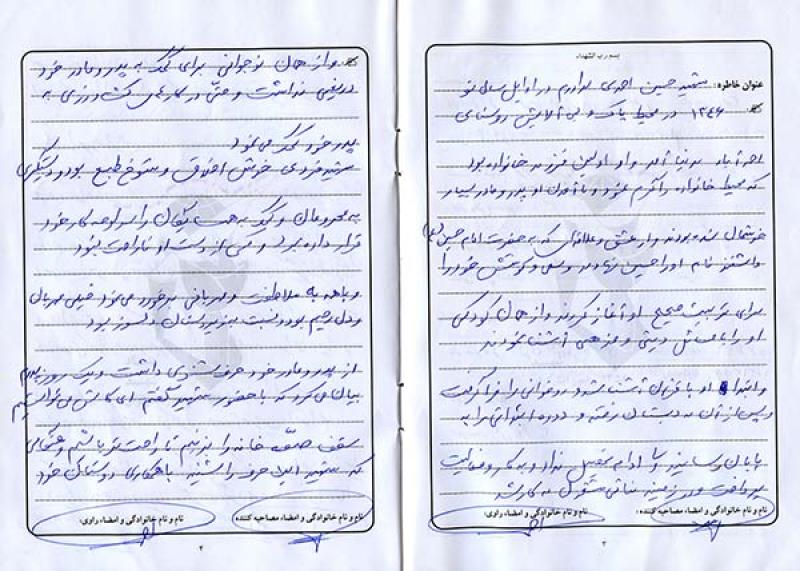 بسم رب الشهداء
عنوان خاطره: شهید حسین احمدی برادرم در اوایل سال نو
۱۳۴۶ در محیط پاک و بی آلایش روستای
احمدآباد بدنیا آمد و او اولین فرزند خانواده بود
که محیط خانواده را گرم نمود و با آمدن او پدر و مادر بسیار
خوشحال شده بودند و از عشق و علاقه‌ای که به حضرت امام حسین (ع)
داشتند نام او را حسین نهادند و سعی و کوشش خود را
برای تربیت صحیح او آغاز کردند و از همان کودکی
او را با مسائل دینی و مذهبی آشنا نمودند
و ابتدا او با قرآن آشنا شد و قرآن را فرا گرفت
و پس از آن به دبستان رفته و دوره ابتدائی را به
پایان رسانید و ادامه تحصیل نداد و به کار و فعالیت
پرداخت و در زمینه بنائی مشغول به کار شد
نام و نام خانوادگی و امضاء مصاحبه کننده:
نام و نام خانوادگی و امضاء راوی:
۲
و از همان نوجوانی برای کمک به پدر و مادر خود
دریغی نداشت و حتی در کارهای کشاورزی به
پدر خود کمک می‌نمود
شهید فردی خوش اخلاق و شوخ طبع بود و دستگیری
به محرومان و کمک به مستمندان را سرلوحه کار خود
قرار داده بود و کسی از دست او ناراحت نبود
و با همه به ملاطفت و مهربانی برخورد می‌نمود خیلی مهربان
و دل رحیم بود و نسبت به زیردستان دلسوز بود
از پدر و مادر خود حرف شنوی داشت و یک روز پدرم
بیان می‌کرد که با حضور شهید گفتم ای کاش می‌توانستیم
سقف صفّه خانه را بزنیم تا راحت‌تر باشیم و هنگامی
که شهید این حرف را شنید با همکاری دوستان خود
نام و نام خانوادگی و امضاء مصاحبه کننده:
نام و نام خانوادگی و امضاء راوی:
۲